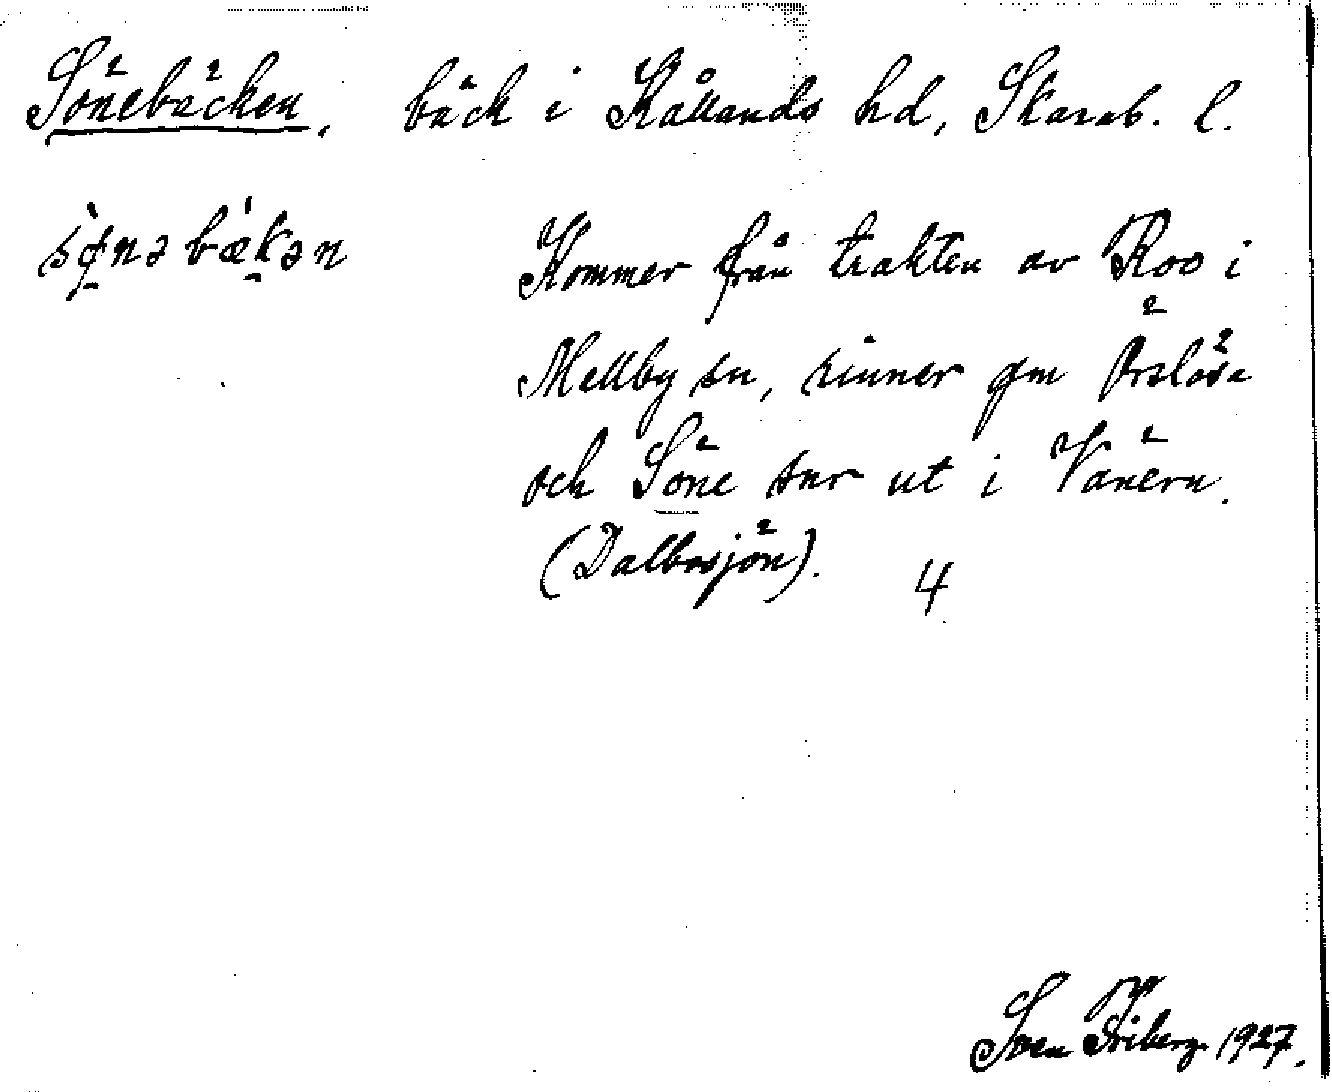 Sönebäcken, bäck i Kållands hd, Skarab. l.
sø̀nəbǽkən
Kommer från trakten av Roo i
Mellby sn, rinner gm Örslösa
och Söne snr ut i Vänern.
(Dalbosjön). 4
Sven Friberg 1927.